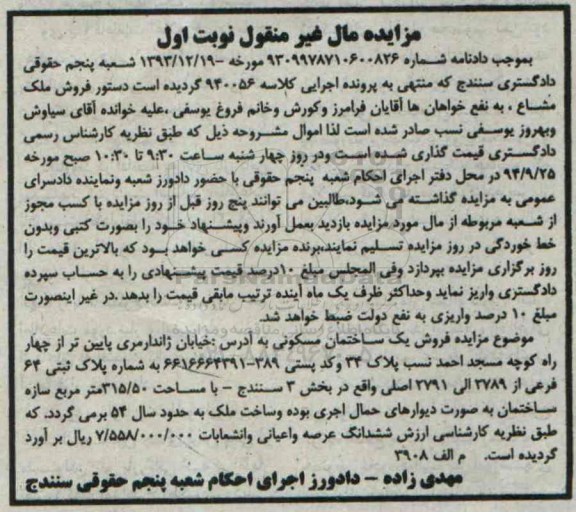 مزایده مال غیر منقول نوبت اول
بموجب دادنامه شماره ۹۳۰۹۹۷۸۷۱۰۶۰۰۸۲۶ مورخه -۱۳۹۳/۱۲/۱۹ شعبه پنجم حقوقی
دادگستری سنندج که منتهی به پرونده اجرایی کلاسه ۹۴۰۰۵۶ گردیده است دستور فروش ملک
مشاع ، به نفع خواهان ها آقایان فرامرز وکورش وخانم فروغ یوسفی ،علیه خوانده آقای سیاوش
وبهروز یوسفی نسب صادر شده است لذا اموال مشروحه ذیل که طبق نظریه کارشناس رسمی
دادگستری قیمت گذاری شده است ودر روز چهار شنبه ساعت ۹:۳۰ تا ۱۰:۳۰ صبح مورخه
۹۴/۹/۲۵ در محل دفتر اجرای احکام شعبه پنجم حقوقی با حضور دادورز شعبه ونماینده دادسرای
عمومی به مزایده گذاشته می شود،طالبین می توانند پنج روز قبل از روز مزایده با کسب مجوز
از شعبه مربوطه از مال مورد مزایده بازدید بعمل آورند وپیشنهاد خود را بصورت کتبی وبدون
خط خوردگی در روز مزایده تسلیم نمایند،برنده مزایده کسی خواهد بود که بالاترین قیمت را
روز برگزاری مزایده بپردازد وفی المجلس مبلغ ۱۰درصد قیمت پیشنهادی را به حساب سپرده
دادگستری واریز نماید وحداکثر ظرف یک ماه آینده ترتیب مابقی قیمت را بدهد .در غیر اینصورت
مبلغ ۱۰ درصد واریزی به نفع دولت ضبط خواهد شد.
موضوع مزایده فروش یک ساختمان مسکونی به آدرس :خیابان ژاندارمری پایین تر از چهار
راه کوچه مسجد احمد نسب پلاک ۳۴ وکد پستی ۳۸۹-۶۶۱۶۶۶۴۳۹۱ به شماره پلاک ثبتی ۶۴
فرعی از ۲۷۸۹ الی ۲۷۹۱ اصلی واقع در بخش ۳ سنندج - با مساحت ۳۱۵/۵۰متر مربع سازه
ساختمان به صورت دیوارهای حمال اجری بوده وساخت ملک به حدود سال ۵۴ برمی گردد. که
طبق نظریه کارشناسی ارزش ششدانگ عرصه واعیانی وانشعابات ۷/۵۵۸/۰۰۰/۰۰۰ ریال بر آورد
گردیده است. م الف ۳۹۰۸
مهدی زاده - دادورز اجرای احکام شعبه پنجم حقوقی سنندج